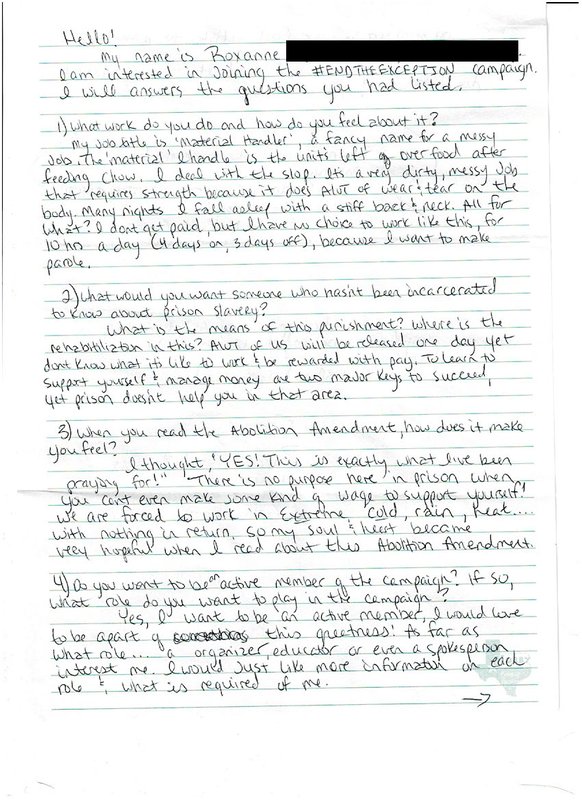 Hello!
My name is Roxanne
I am interested in joining the #ENDTHEEXCEPTION campaign.
I will answers the questions you had listed.
1) What work do you do and how do you feel about it?
My Job title is 'Material Handler', a fancy name for a messy
Job. The 'material' I handle is the units left of over food after
feeding chow. I deal with the slop. Its a very dirty, messy Job
that requires strength because it does ALOT of wear & tear on the
body. Many nights I fall asleep with a stiff back & neck. All for
what? I dont get paid, but I have no choice to work like this, for
10 hrs a day (4 days on, 3 days off), because I want to make
parole.
2) What would you want someone who hasn't been incarcerated
to know about prison slavery?
What is the means of this punishment? Where is the
rehabitilization in this? ALOT of us will be released one day yet
dont know what its like to work & be rewarded with pay. To learn to
support yourself & manage money are two major keys to succeed,
yet prison doesn't help you in that area.
3) When you read the Abolition Amendment, how does it make
you feel?
I thought, "YES! This is exactly what I've been
praying for!" "There is no purpose here in prison when
you can't even make some kind of wage to support yourself!
We are forced to work in Extreme cold, rain, heat....
with nothing in return, so my soul & heart became
very hopeful when I read about this Abolition Amendment.
4) Do you want to be an active member of the campaign? If so,
what role do you want to play in the campaign?
Yes, I want to be an active member, I would love
to be apart of this greatness! As far as
what role... a organizer, educator or even a spokesperson
interest me. I would just like more information on each
role & what is required of me.